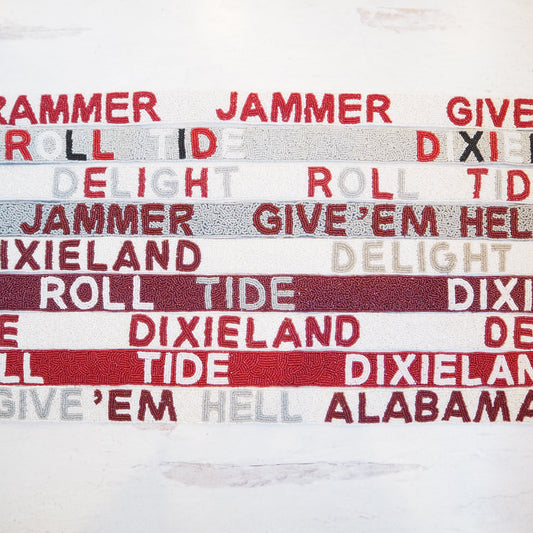 RAMMER JAMMER GIVE
ROLL TIDE DIXIE
DELIGHT ROLL TID
JAMMER GIVE 'EM HELL
IXIELAND DELIGHT
ROLL TIDE DIXI
E DIXIELAND DE
LL TIDE DIXIELAN
GIVE 'EM HELL ALABAMA